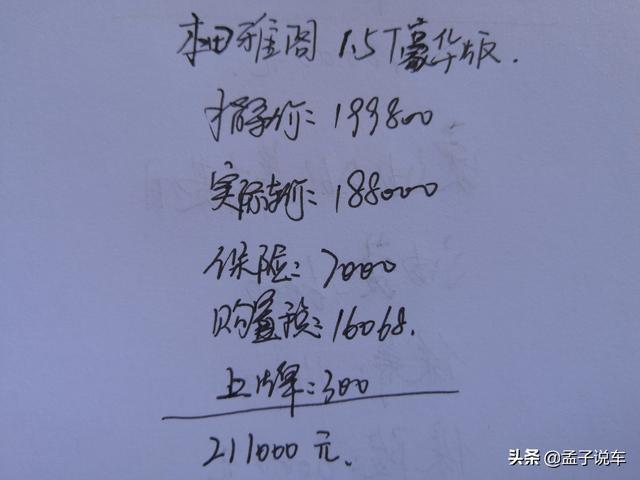 本田雅阁 1.5T豪华版.
指导价: 199800
实际车价: 188000
保险: 7000
购置税: 16068.
上牌: 300
211000 元.
头条 @孟子说车